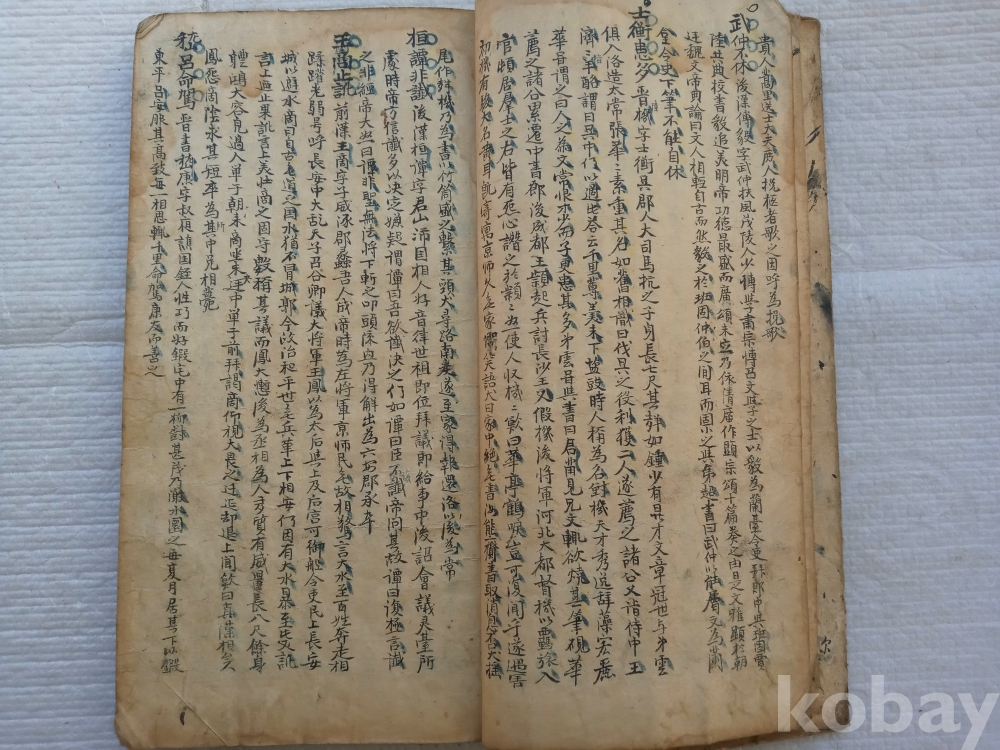 貴人薤里送士大夫庶人挽柩者歌之因呼為挽歌
武仲不休後漢傅毅字武仲扶風茂陵人少博學肅宗博召文學之士以毅為蘭臺令史拜郎中與班固賈
逵共典校書毅追美明帝功德最盛而廣頌未立乃依清廟作顯宗頌十篇奏之由是文雅顯於朝
廷魏文帝典論曰文人相輕自古而然毅之於班固伯仲之間耳而固小之與弟超書曰武仲以能屬文為蘭
臺令史下筆不能自休
士衡患多晉機字士衡吳郡人大司馬抗之子身長七尺其聲如鐘少有異才文章冠世与弟雲
俱入洛造太常張華華素重其名如舊相識曰伐吳之役利獲二人遂薦之諸公又詣侍中王
濟羊酪謂曰吳中何以適此答云千里蓴羹未下鹽豉時人稱為名對機天才秀逸辞藻宏麗
華嘗謂之曰人之為文常恨才少而子更患其多弟雲嘗與書曰君苗見兄文輒欲燒其筆硯華
薦之諸公累遷中書郎後成都王穎起兵討長沙王乂假機後將軍河北大都督機以羈旅入
官頓居羣士之右皆有怨心譖之於穎穎使人收機機歎曰華亭鶴唳豈可復聞乎遂遇害
初機有駿犬名黃耳既寄寓京師久無家問笑語犬曰家中絕無書汝能齎書取消息否犬搖
尾作聲機乃為書以竹筒盛之繫其頭犬尋路南走遂至家得報還洛以後為常
桓譚非讖後漢桓譚字君山沛国相人好音律世祖即位拜議郎給事中後詔會議灵臺所
處時帝方信讖多以決定嫌疑謂譚曰吾欲讖決之何如譚曰臣不讖帝问其故譚曰復極言讖
之非經帝大怒曰譚非聖無法將下斬之叩頭流血乃得解出為六安郡丞卒
王商止訛前漢王商字子威涿郡蠡吾人成帝時為左將軍京師民无故相驚言大水至百姓奔走相
蹂躪老弱号呼長安中大乱天子召公卿議大將軍王鳳以為太后與上及后宮可御船令吏民上長安
城以避水商曰自古无道之国水猶不冒城郭今政治和平世无兵革上下相安何因有大水暴至此必訛
言上迺止果訛言上美壯商之固守數稱其議而鳳大慙後為丞相為人多質有威重長八尺餘身
體鴻大容皃過人單于朝未商坐未廷中單于前拜謁商仰視大畏之迁延却退上聞歎曰真漢相矣
鳳怨商陰求其短卒為其所中免相薨
嵇呂命駕晉書嵇康字叔夜譙国銍人性巧而好鍜宅中有一柳樹甚茂乃激水圜之每夏月居其下以鍜
東平呂安服其高致每一相思輒千里命駕康友而善之
kobay